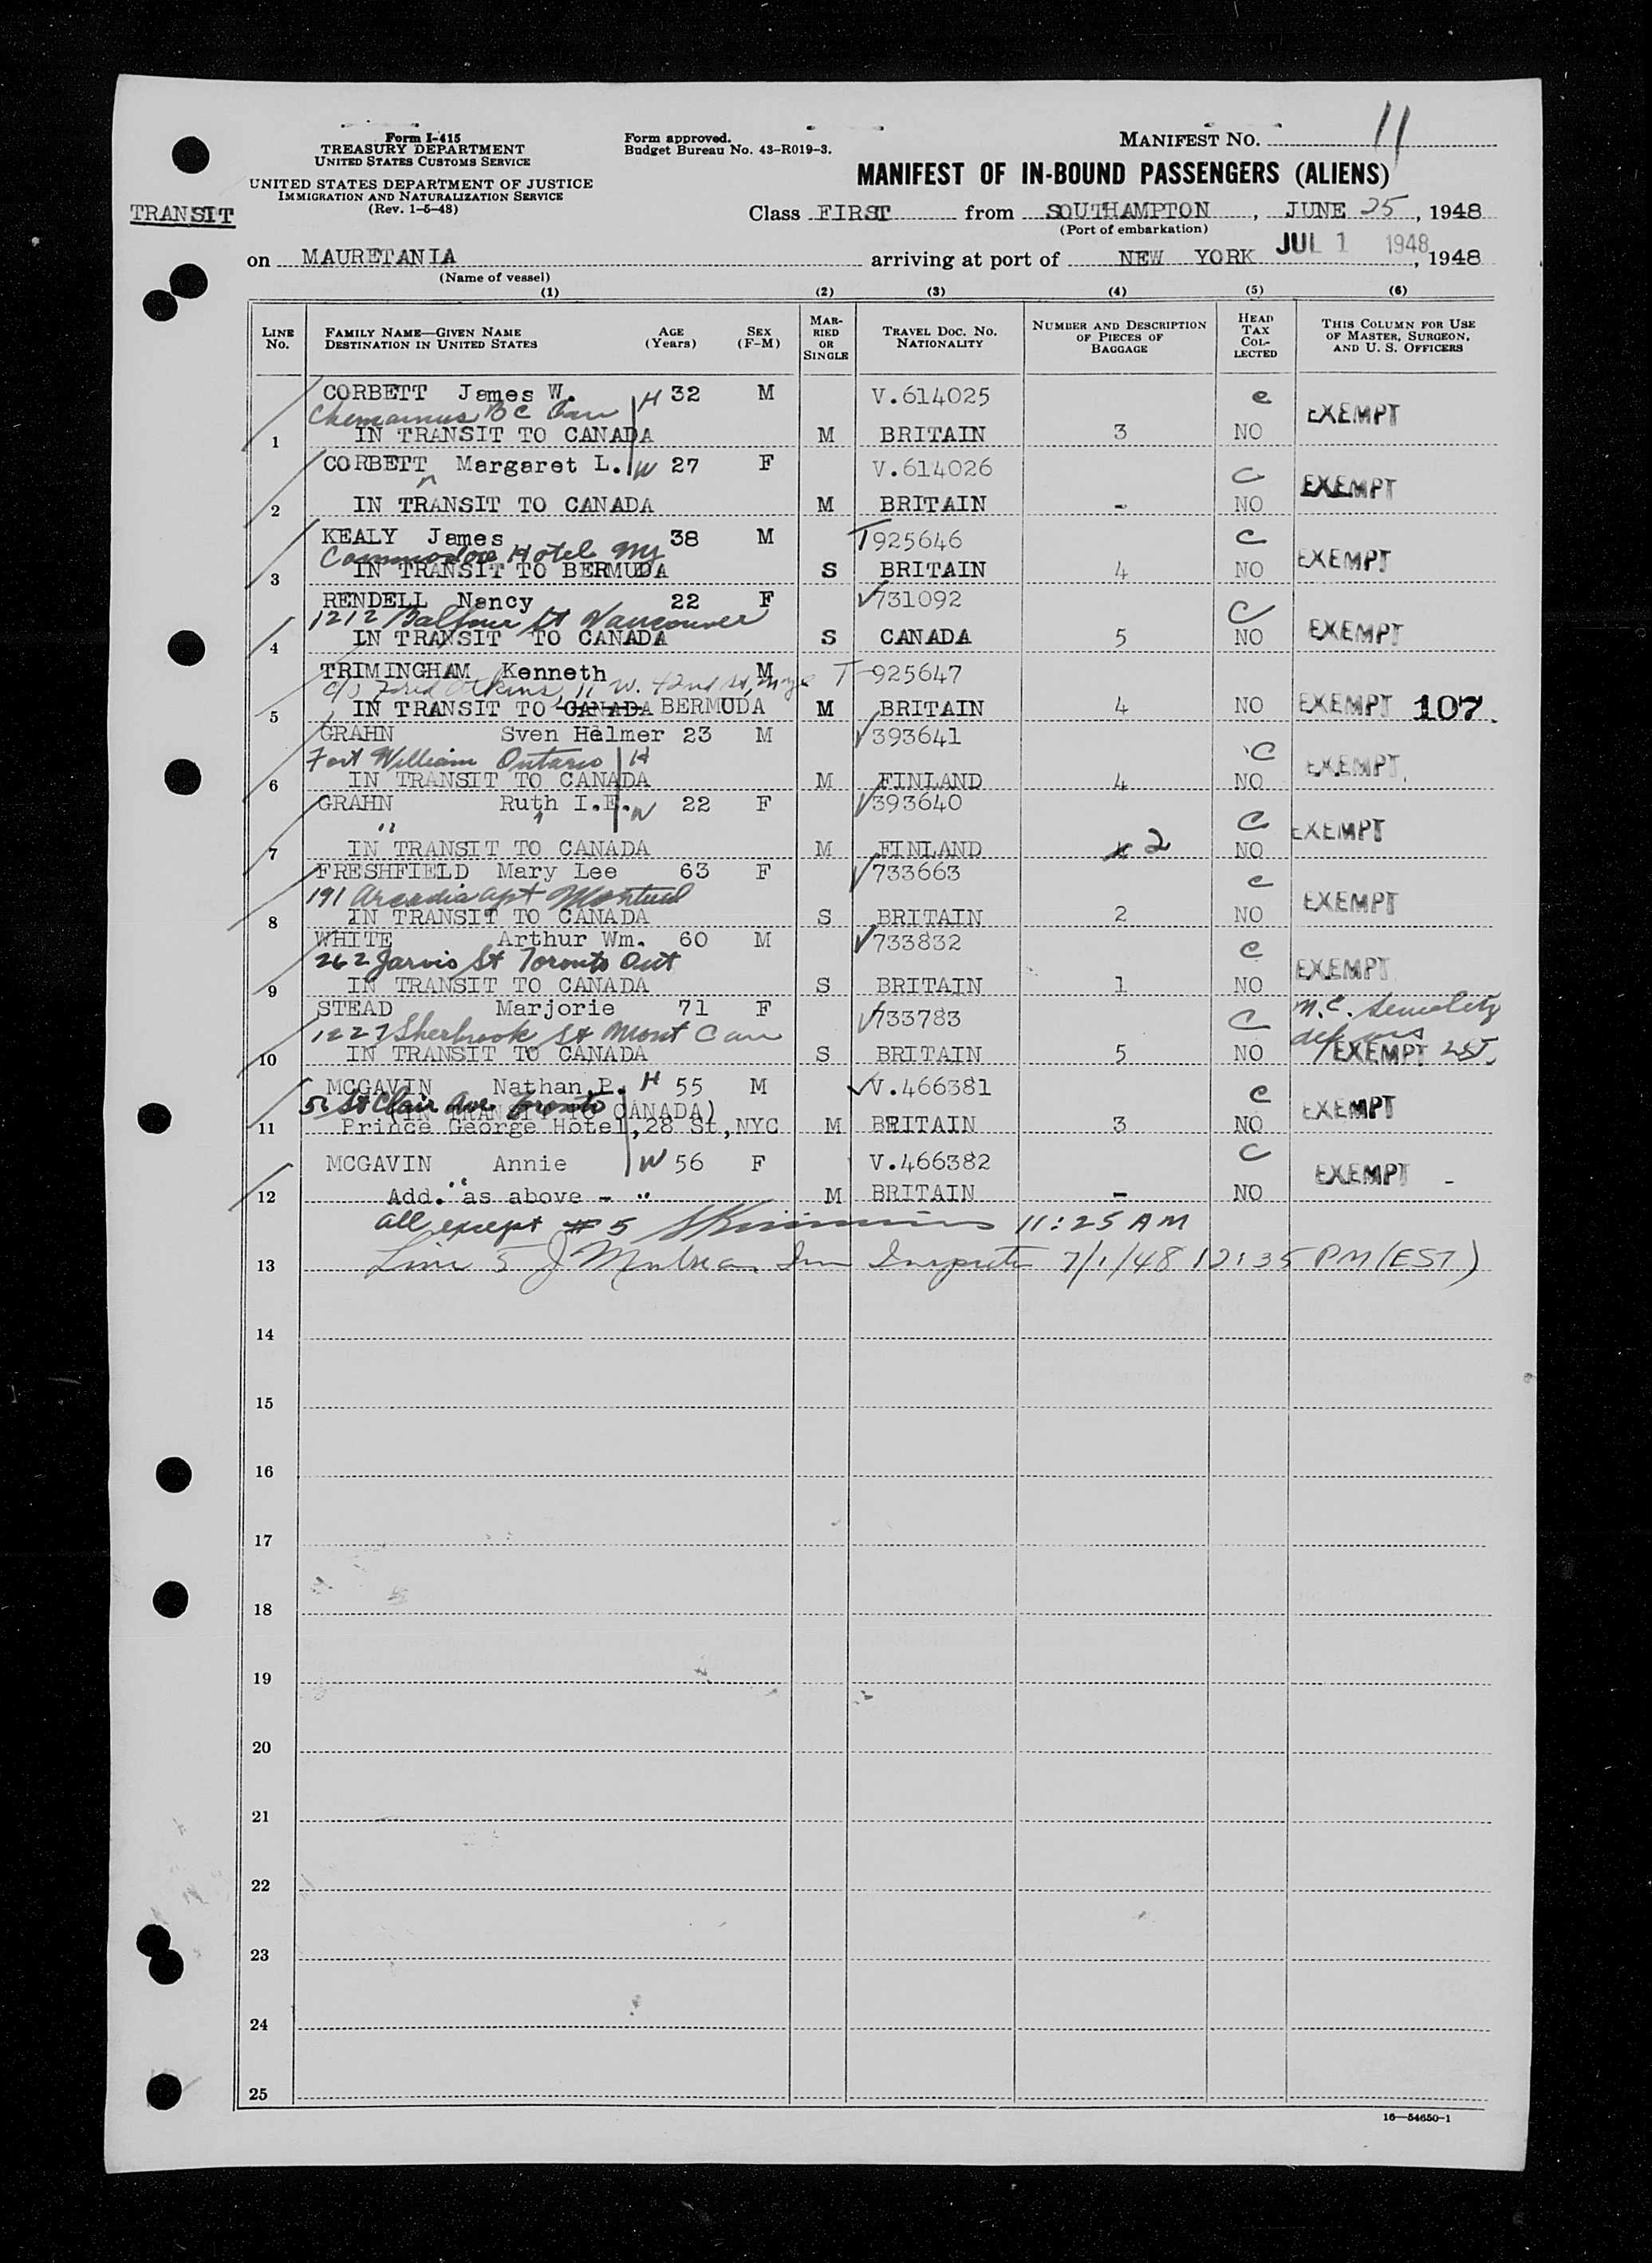 Form I-415
TREASURY DEPARTMENT
UNITED STATES CUSTOMS SERVICE
UNITED STATES DEPARTMENT OF JUSTICE
IMMIGRATION AND NATURALIZATION SERVICE
(Rev. 1-5-48)
Form approved.
Budget Bureau No. 43-R019-3.
MANIFEST No. 11
MANIFEST OF IN-BOUND PASSENGERS (ALIENS)
TRANSIT
Class FIRST from SOUTHAMPTON, JUNE 25, 1948
(Port of embarkation)
on MAURETANIA arriving at port of NEW YORK JUL 1 1948, 1948
(Name of vessel)
(1) (2) (3) (4) (5) (6)
LINE No. FAMILY NAME—GIVEN NAME DESTINATION IN UNITED STATES AGE (Years) SEX (F-M) MARRIED OR SINGLE TRAVEL DOC. NO. NATIONALITY NUMBER AND DESCRIPTION OF PIECES OF BAGGAGE HEAD TAX COLLECTED THIS COLUMN FOR USE OF MASTER, SURGEON, AND U. S. OFFICERS
CORBETT James W. H 32 M V.614025 c EXEMPT
Chemainus BC Can
1 IN TRANSIT TO CANADA M BRITAIN 3 NO
CORBETT Margaret L. W 27 F V.614026 C EXEMPT
2 IN TRANSIT TO CANADA M BRITAIN - NO
KEALY James 38 M T925646 C EXEMPT
Commodore Hotel NY
3 IN TRANSIT TO BERMUDA S BRITAIN 4 NO
RENDELL Nancy 22 F 731092 C EXEMPT
1212 Balfour St Vancouver
4 IN TRANSIT TO CANADA S CANADA 5 NO
TRIMINGHAM Kenneth M T-925647
c/o Fred Atkins, 11 W. 42nd St,
5 IN TRANSIT TO CANADA BERMUDA M BRITAIN 4 NO EXEMPT 107.
GRAHN Sven Helmer 23 M 393641 C EXEMPT
Fort William Ontario H
6 IN TRANSIT TO CANADA M FINLAND 4 NO
GRAHN Ruth I.E. W 22 F 393640 C EXEMPT
"
7 IN TRANSIT TO CANADA M FINLAND 2 NO
FRESHFIELD Mary Lee 63 F 733663 c EXEMPT
191 Arcadia apt Montreal
8 IN TRANSIT TO CANADA S BRITAIN 2 NO
WHITE Arthur Wm. 60 M 733832 c EXEMPT
262 Jarvis St Toronto Ont
9 IN TRANSIT TO CANADA S BRITAIN 1 NO
STEAD Marjorie 71 F 733783 C M.C. Senility
1227 Sherbrook St Mont Can
10 IN TRANSIT TO CANADA S BRITAIN 5 NO EXEMPT
MCGAVIN Nathan P. H 55 M V.466381 c EXEMPT
St Clair Ave Toronto
(IN TRANSIT TO CANADA)
11 Prince George Hotel, 28 St, NYC M BRITAIN 3 NO
MCGAVIN Annie W 56 F V.466382 C EXEMPT -
12 Add. as above - " M BRITAIN - NO
all except # 5 11:25 AM
13 Line 5 J Imm Inspector 7/1/48 12:35 PM (EST)
14
15
16
17
18
19
20
21
22
23
24
25
16—54650-1